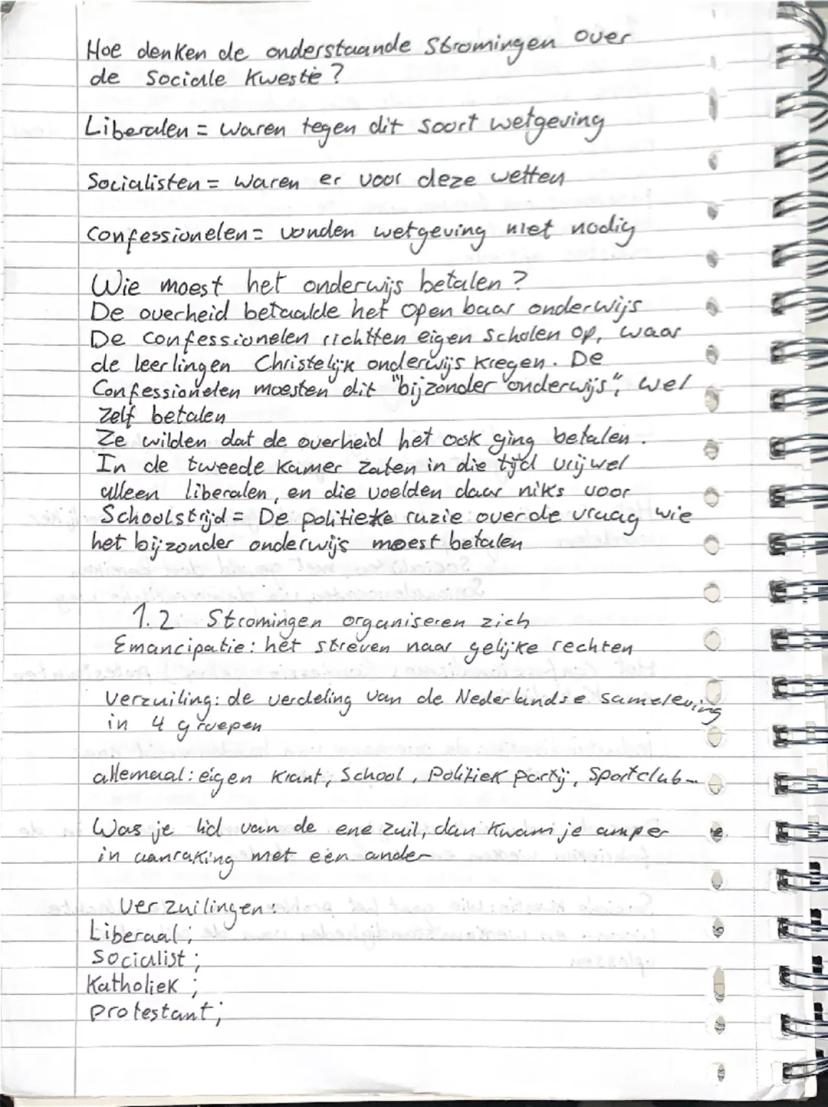 Hoe denken de onderstaande Stromingen over
de Sociale Kwestie?
Liberalen = waren tegen dit soort wetgeving
Socialisten = waren er voor deze wetten
Confessionelen = vonden wetgeving niet nodig
Wie moest het onderwijs betalen?
De overheid betaalde het open baar onderwijs
De Confessionelen richtten eigen Scholen op, waar
de leerlingen Christelijk onderwijs kregen. De
Confessionelen moesten dit "bijzonder onderwijs", wel
zelf betalen
Ze wilden dat de overheid het ook ging betalen.
In de tweede Kamer zaten in die tijd vrijwel
alleen liberalen, en die voelden daar niks voor
Schoolstrijd = De politieke ruzie over de vraag wie
het bijzonder onderwijs moest betalen
1.2 Stromingen organiseren zich
Emancipatie: het streven naar gelijke rechten
Verzuiling: de verdeling van de Nederlandse sameleving
in 4 groepen
allemaal: eigen Krant, School, Politiek partij, Sportclub...
Was je lid van de ene zuil, dan Kwam je amper
in aanraking met een ander
Verzuilingen:
Liberaal;
Socialist;
Katholiek;
protestant;